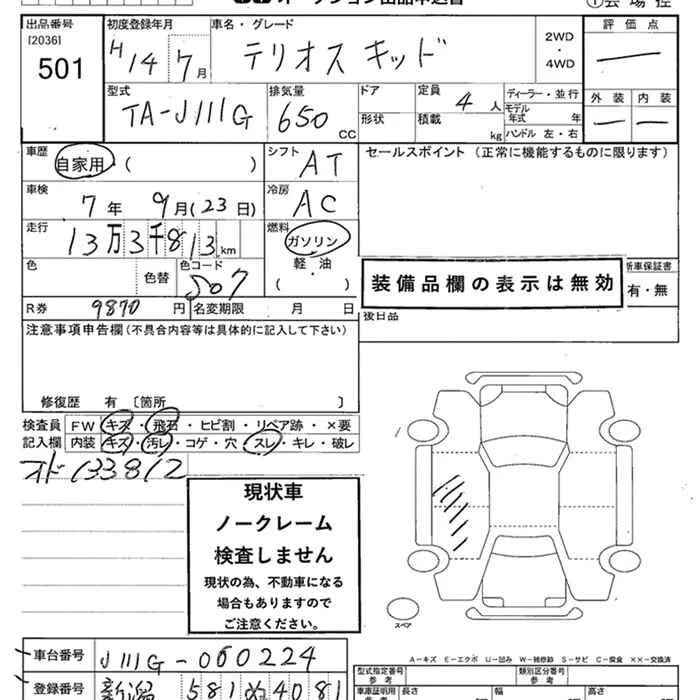 オークション出品申込書
①会場控
出品番号 [2036] 501
初度登録年月 H14 7月
車名・グレード テリオスキッド
2WD・4WD
評価点
型式 TA-J111G
排気量 650 CC
ドア
形状
定員 4人
積載 kg
ディーラー・並行
モデル年式 年
ハンドル 左・右
外装 内装
車歴 自家用 ( )
シフト AT
セールスポイント (正常に機能するものに限ります)
車検 7年 9月(23日)
冷房 AC
走行 13万3千813km
燃料 ガソリン
軽・油
( )
色 色替 色コード S07
装備品欄の表示は無効
新車保証書 有・無
R券 9870円 名変期限 月 日
後日品
注意事項申告欄 (不具合内容等は具体的に記入して下さい)
修復歴 有 〔箇所 〕
検査員記入欄
FW キズ・飛石・ヒビ割・リペア跡・×要
内装 キズ・汚レ・コゲ・穴・スレ・キレ・破レ
オド133812
現状車
ノークレーム
検査しません
現状の為、不動車になる
場合もありますので
ご注意ください。
スペア
A-キズ E-エクボ U-凹み W-補修跡 S-サビ C-腐食 XX-交換済
車台番号 J111G-060224
登録番号 新潟 581 ぬ 4081
型式指定番号 参考
類別区分番号 参考
車庫証明用 参考
長さ 幅 高さ